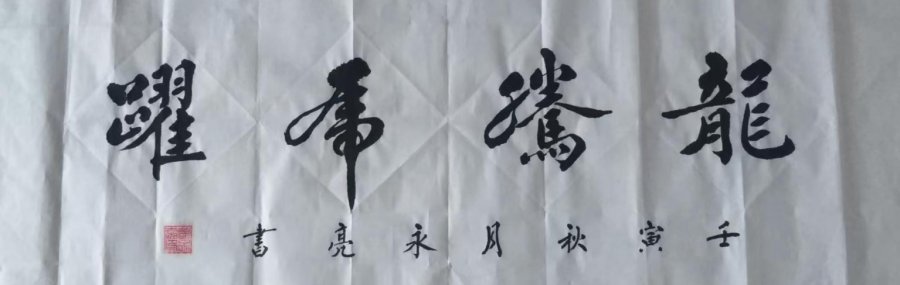 龍騰虎躍
壬寅秋月永亮書